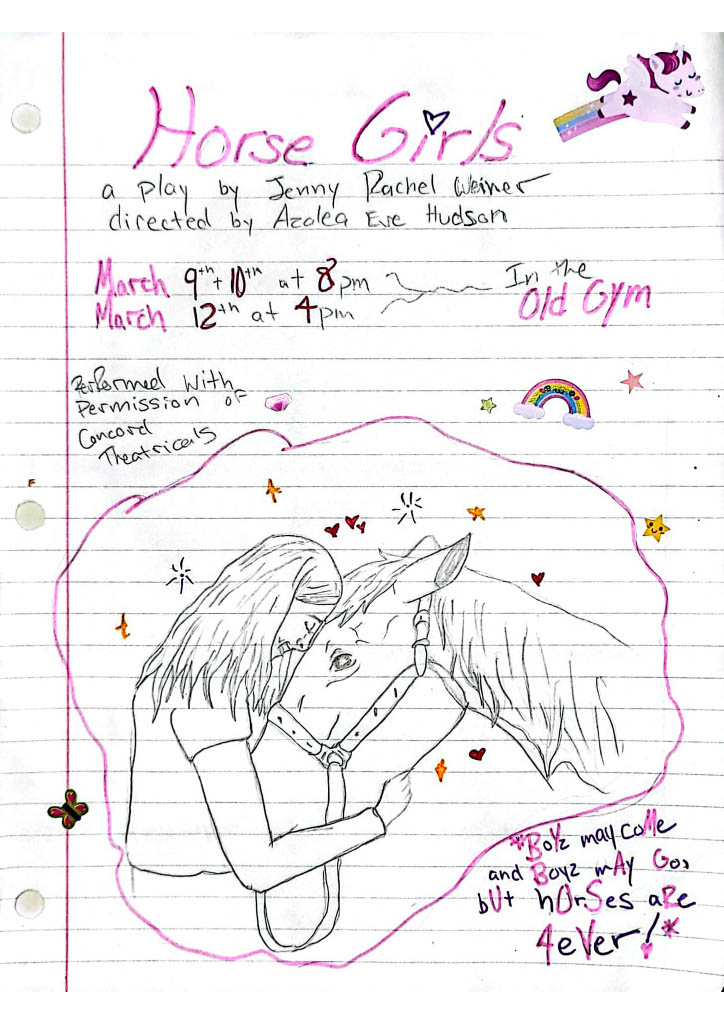 Horse Girls
a play by Jenny Rachel Weiner
directed by Azalea Eve Hudson
March 9th + 10th at 8pm
March 12th at 4pm
In the
Old Gym
Performed With
Permission of
Concord
Theatricals
*BoYz may coMe
and Boyz mAy Go,
bUt hOrSes aRe
4eVer!*